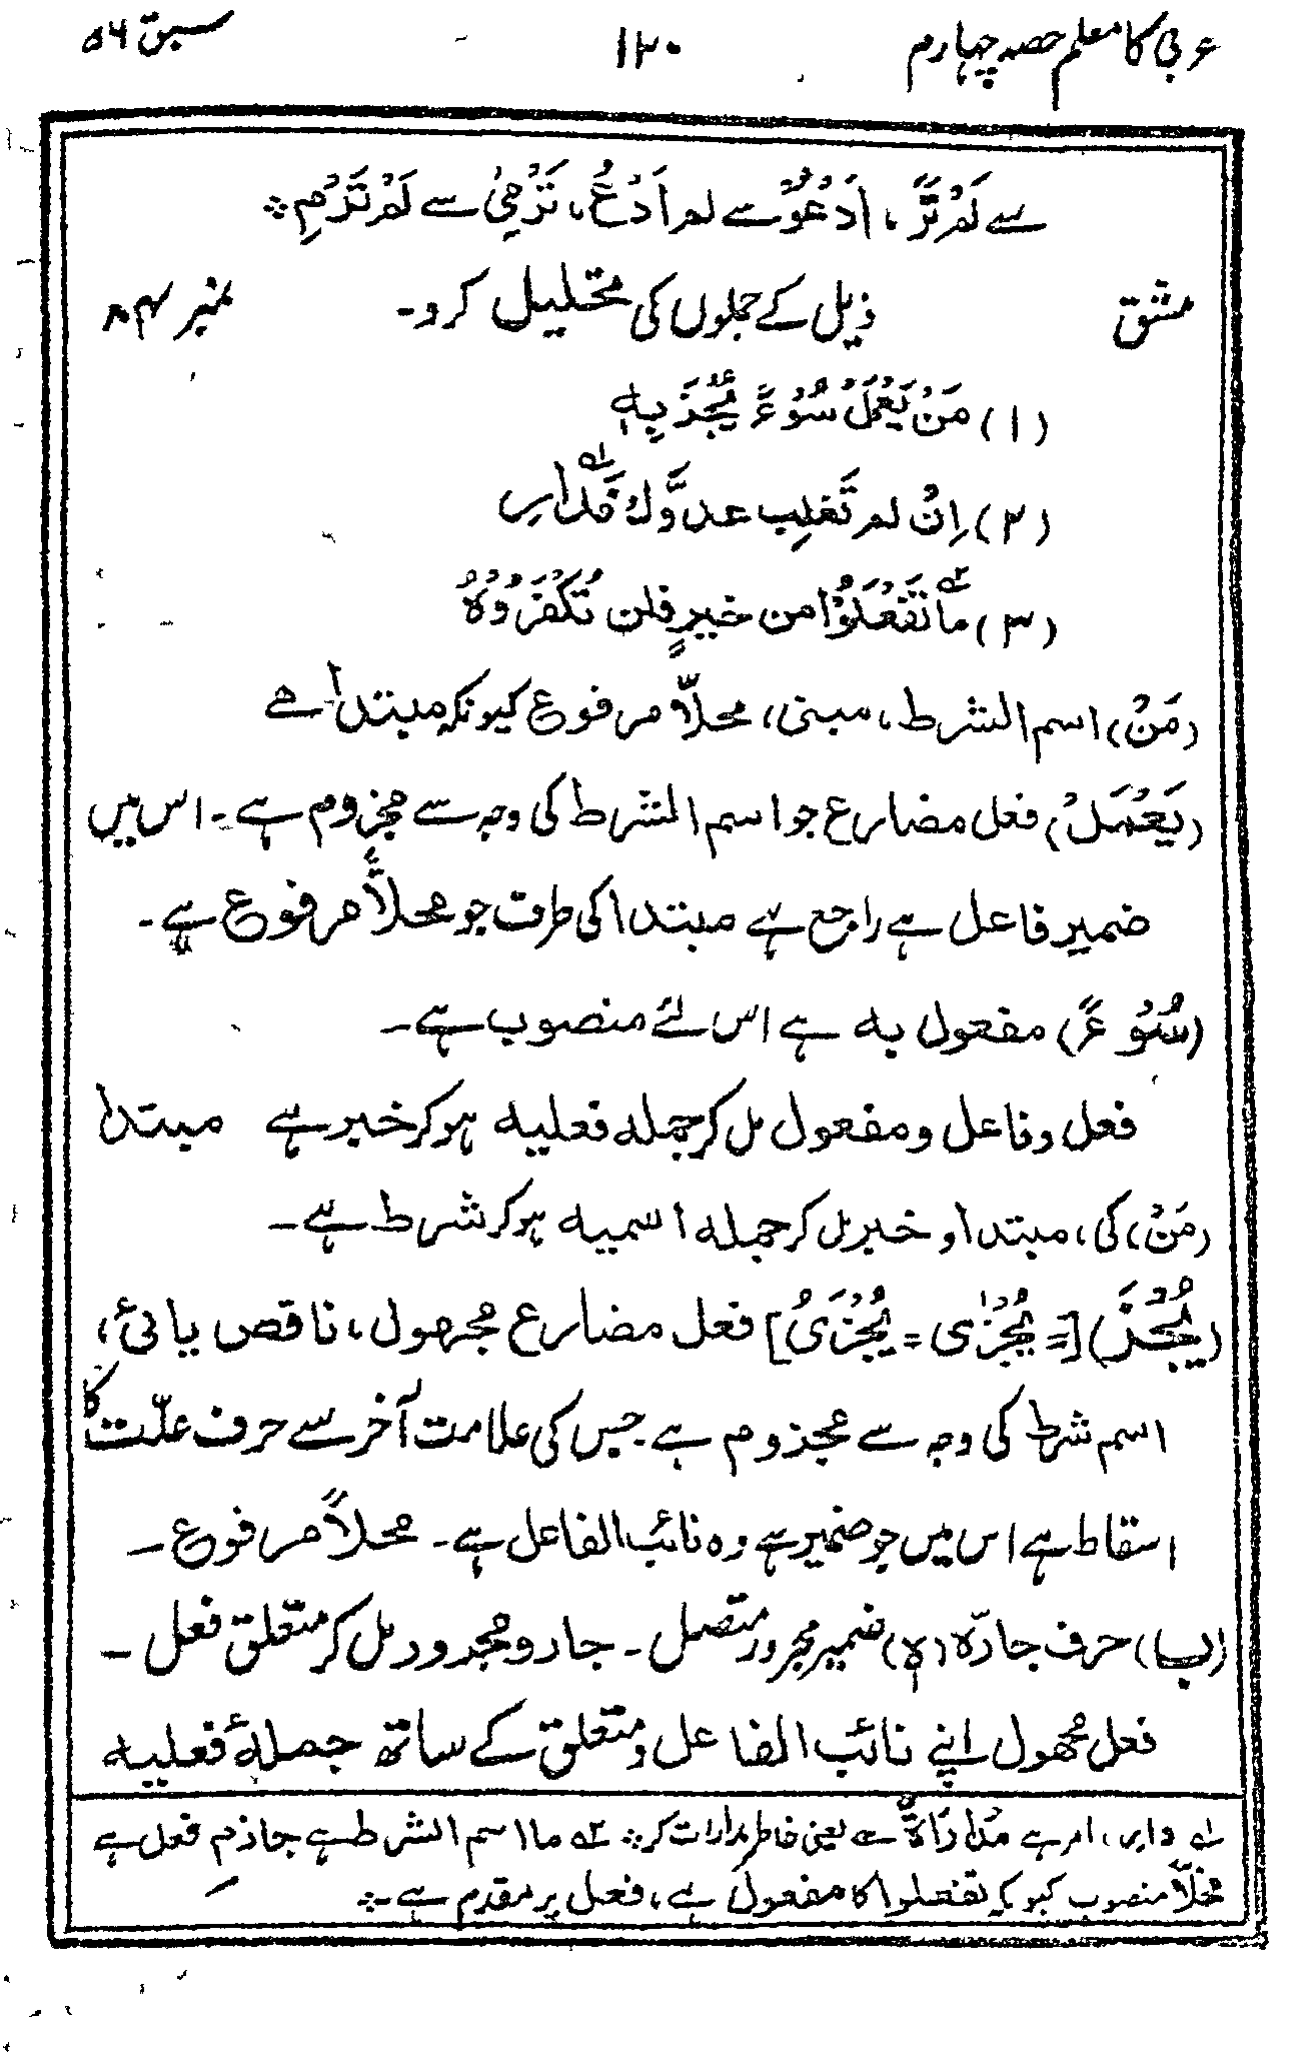 عربی کا معلم حصہ چہارم ۱۲۰ سبق ۵۶
سے لَمْ تَرَ، اَدْعُوْ سے لم اَدْعُ، تَرْمِیْ سے لَمْ تَرْمِ ؞
مشق ذیل کے جملوں کی تحلیل کرو۔ نمبر ۸۴
(۱) مَنْ یَعْمَلْ سُوْءً یُجْزَ بِهٖ
(۲) اِنْ لم تَغلِب عدوَّك فَدارِ ؎۱
(۳) ما ؎۲ تَفْعَلُوْا من خیرٍ فلن تُکْفَرُوْهُ
(مَنْ) اسم الشرط، مبنی، محلاًّ مرفوع کیونکہ مبتدا ہے
(یَعْمَلْ) فعل مضارع جو اسم الشرط کی وجہ سے مجزوم ہے۔ اس میں
ضمیر فاعل ہے راجع ہے مبتدا کی طرف جو محلاًّ مرفوع ہے۔
(سُوْءً) مفعول به ہے اس لئے منصوب ہے۔
فعل و فاعل و مفعول مل کر جمله فعلیه ہو کر خبر ہے مبتدا
(مَنْ) کی، مبتدا و خبر مل کر جمله اسمیه ہو کر شرط ہے۔
(یُجْزَ) [= یُجْزٰی = یُجْزَیُ] فعل مضارع مجهول، ناقص یائیٔ،
اسم شرط کی وجہ سے مجزوم ہے۔ جس کی علامت آخر سے حرف علّت کا
اسقاط ہے اس میں جو ضمیر ہے وہ نائب الفاعل ہے۔ محلاًّ مرفوع ۔
(ب) حرف جارّہ (ہٖ) ضمیر مجرور متصل ۔ جار و مجرور مل کر متعلق فعل ۔
فعل مجہول اپنے نائب الفاعل و متعلق کے ساتھ جملۂ فعلیه
؎۱ دارِ، امر ہے مُدارَاةٌ سے یعنی خاطر مدارات کر ؞ ؎۲ ما اسم الشرط ہے جازم فعل ہے
محلاًّ منصوب کیوں کہ تفعلوا کا مفعول ہے، فعل پر مقدم ہے ۔؞